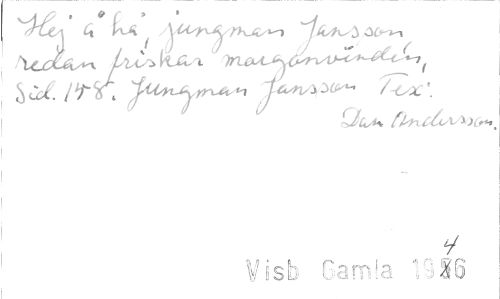 Hej å hå, jungman Jansson,
redan friskar morgonvinden,
Sid. 148. Jungman Jansson Tex:
Dan Andersson.
Visb Gamla 1946